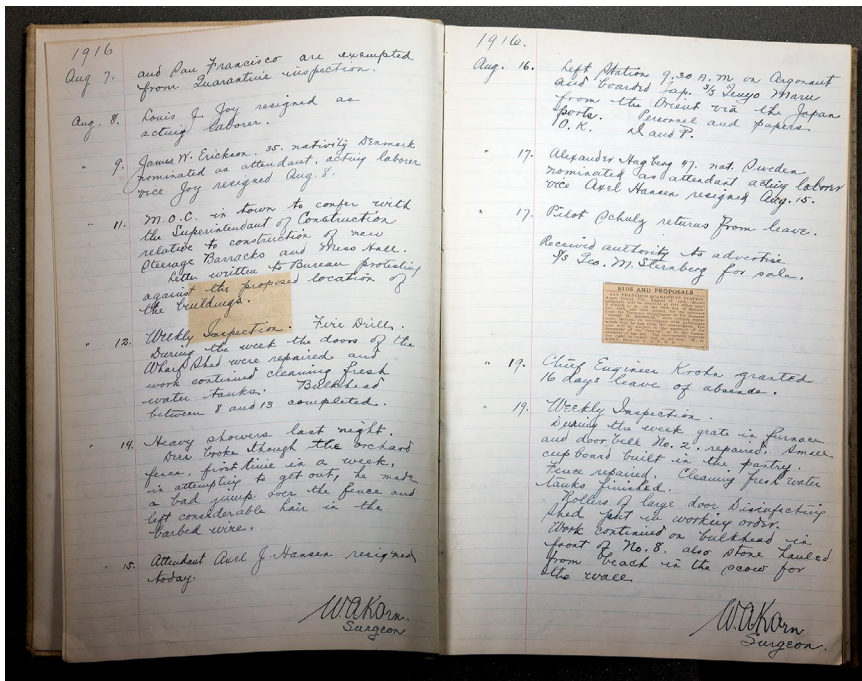 1916
Aug 7. and San Francisco are exempted
from Quarantine inspection.
Aug. 8. Louis J. Joy resigned as
acting laborer.
" 9. James W. Erickson. 35. nativity Denmark
nominated as attendant, acting laborer
vice Joy resigned Aug. 8.
" 11. M.O.C. in town to confer with
the Superintendant of Construction
relative to construction of new
Steerage Barracks and Mess Hall.
Letter written to Bureau protesting
against the proposed location of
the buildings.
" 12. Weekly Inspection. Fire Drills.
During the week the doors of the
Wharf shed were repaired and
work continued cleaning fresh
water tanks. Bulkhead
between 8 and 13 completed.
" 14. Heavy showers last night.
broke though the orchard
fence, first time in a week,
in attempting to get out, he made
a bad jump over the fence and
left considerable hair in the
barbed wire.
" 15. Attendant Axel J. Hansen resigned
today.
W A Korn.
Surgeon
1916.
Aug. 16. Left Station 9.30 A.M on Argonaut
and boarded Jap. S/S Tenyo Maru
from the Orient via the Japan
ports. Personnel and papers
O.K. D and P.
" 17. Alexander Hagberg 47. nat. Sweden
nominated as attendant acting laborer
vice Axel Hansen resigned Aug. 15.
" 17. Pilot Schulz returns from leave.
Received authority to advertise
S/S Geo. M. Sternberg for sale.
BIDS AND PROPOSALS
SAN FRANCISCO QUARANTINE STATION
" 19. Chief Engineer Krohn granted
16 days leave of absence.
" 19. Weekly Inspection.
During the week grate in furnace
and door bell No. 2. repaired. Small
cupboard built in the pantry.
Fence repaired. Cleaning fresh water
tanks finished.
Rollers of large door Disinfecting
shed put in working order.
Work continued on bulkhead in
front of No. 8. also stone hauled
from beach in the scow for
the wall
W A Korn
Surgeon.